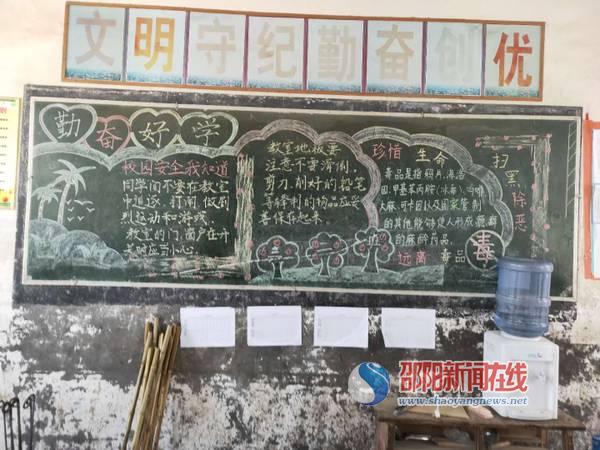 文明守纪勤奋创优
勤奋好学
校园安全我知道
同学间不要在教室
中追逐、打闹、做剧
烈运动和游戏。
教室的门、窗户在开
关时应当小心。
教室地板要
注意不要滑倒。
剪刀、削好的铅笔
等锋利的物品应妥
善保存起来。
珍惜生命
毒品是指鸦片、海洛
因、甲基苯丙胺(冰毒)、吗啡
大麻、可卡因以及国家管制
的其他能够使人形成瘾癖
的麻醉药品。
远离毒品
毒
扫黑除恶
邵阳新闻在线
www.shaoyangnews.net